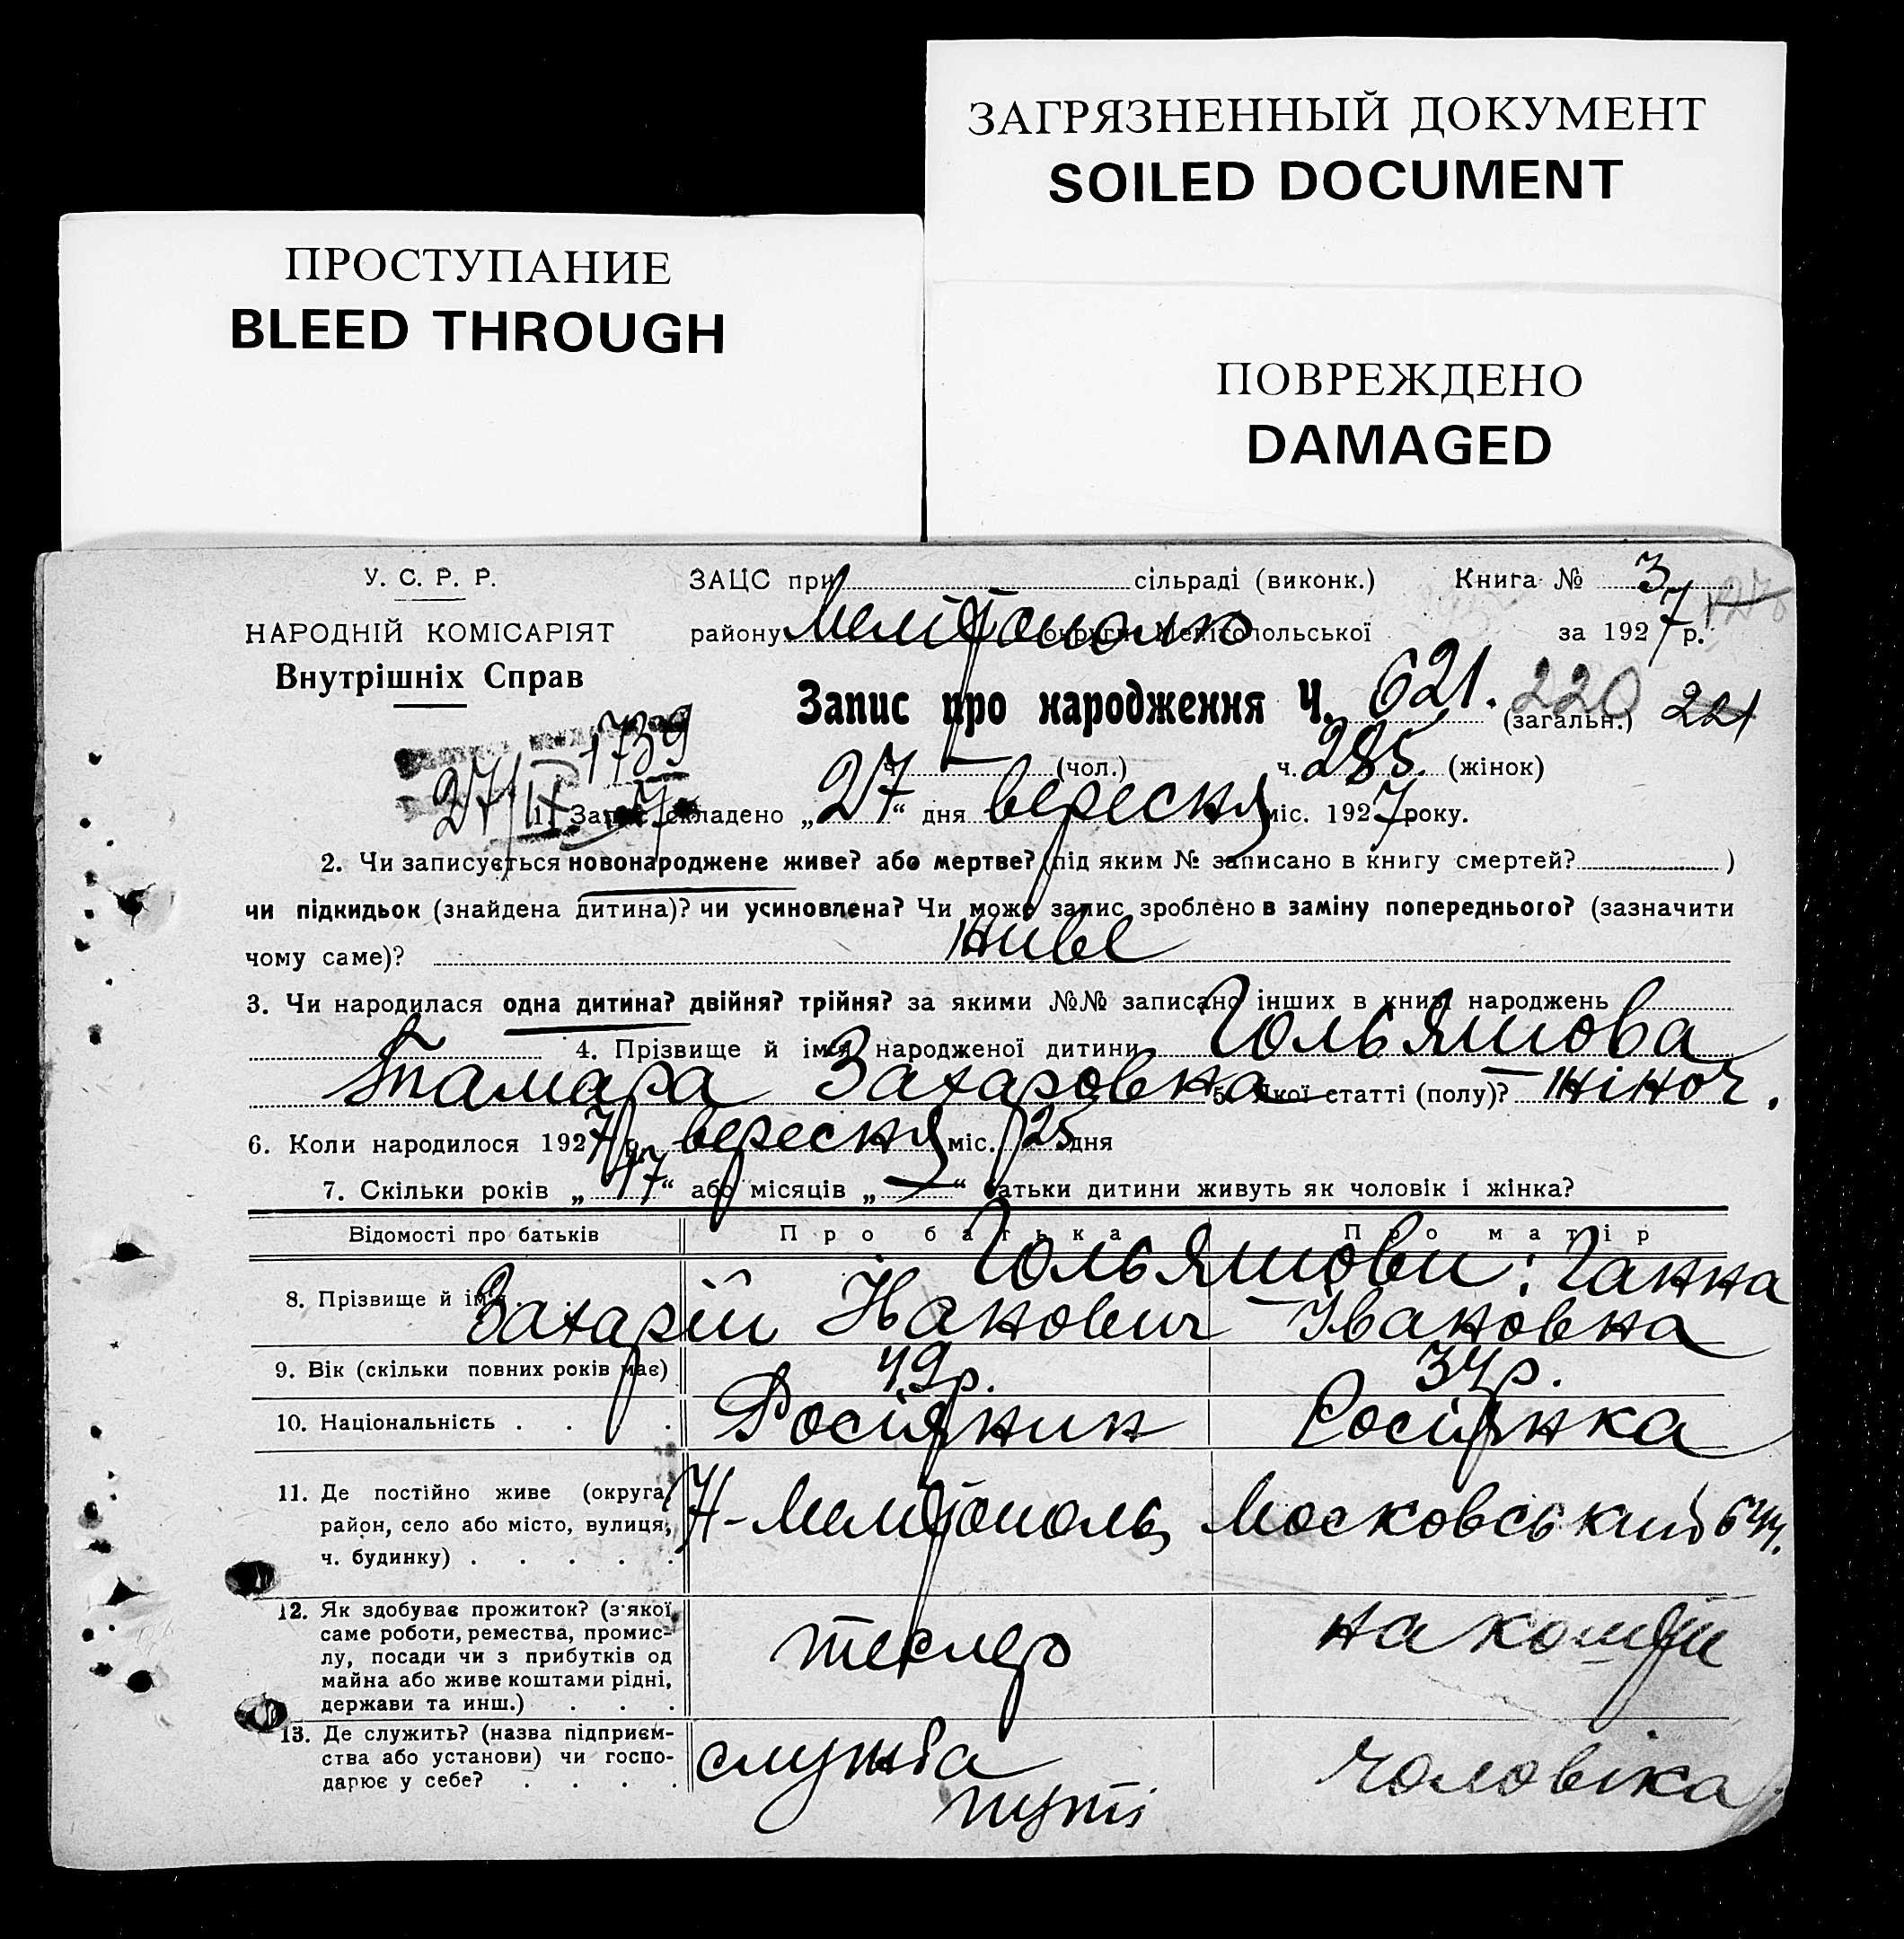 ЗАГРЯЗНЕННЫЙ ДОКУМЕНТ
SOILED DOCUMENT
ПРОСТУПАНИЕ
BLEED THROUGH
ПОВРЕЖДЕНО
DAMAGED
У. С. Р. Р.
НАРОДНІЙ КОМІСАРІЯТ
Внутрішніх Справ
ЗАЦС при сільраді (виконк.) Книга № 3
району округи Мелітопольської за 1927 р.
Запис про народження Ч. 621. (загальн.) 220 221
1739
27/IX 7
ч. — (чол.) ч. 285. (жінок)
1. Запис складено „27“ дня вересня міс. 1927 року.
2. Чи записується новонароджене живе? або мертве? (під яким № записано в книгу смертей? )
чи підкидьок (знайдена дитина)? чи усиновлена? Чи може запис зроблено в заміну попереднього? (зазначити
чому саме)? живе
3. Чи народилася одна дитина? двійня? трійня? за якими №№ записано інших в книзі народжень
4. Прізвище й імя народженої дитини Гольяшова
Тамара Захаровна 5. Якої статті (полу)? жіноч.
6. Коли народилося 1927 р. вересня міс. 25 дня
7. Скільки років „17“ або місяців „—“ батьки дитини живуть як чоловік і жінка?
Відомості про батьків Про батька Про матір
Гольяшови: Ганна
8. Прізвище й імя Захарій Івановна
9. Вік (скільки повних років має) 49р. 34р.
10. Національність . . . Росіянин Росіянка
11. Де постійно живе (округа,
район, село або місто, вулиця,
ч. будинку) . . . . .
Н-Мелітополь Московський
12. Як здобуває прожиток? (з'якої
саме роботи, ремества, промис-
лу, посади чи з прибутків од
майна або живе коштами рідні,
держави та инш.) . . .
тесляр на кошти
13. Де служить? (назва підприєм-
ства або установи) чи госпо-
дарює у себе? . . . .
служба
путі
чоловіка